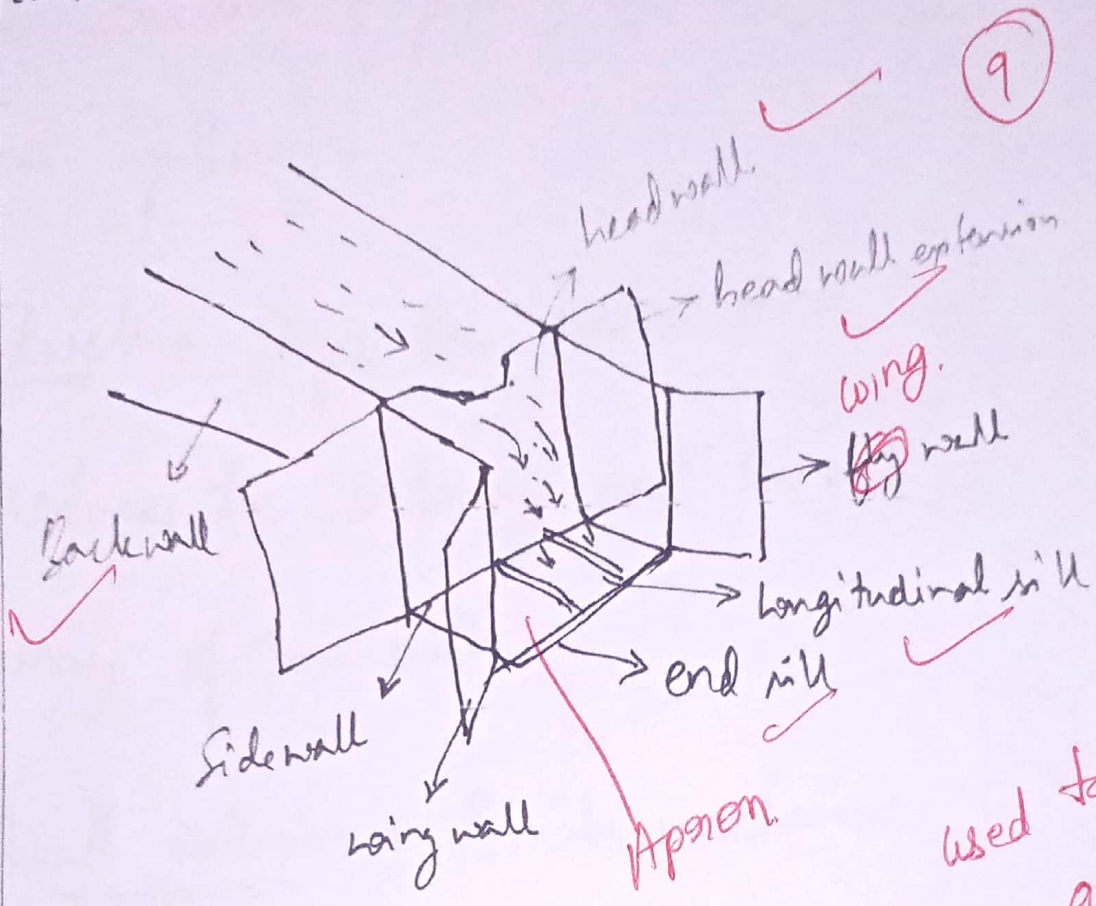 9
headwall
head wall extension
wing.
wall
Backwall
Longitudinal sill
end sill
Sidewall
wing wall
Apron
used